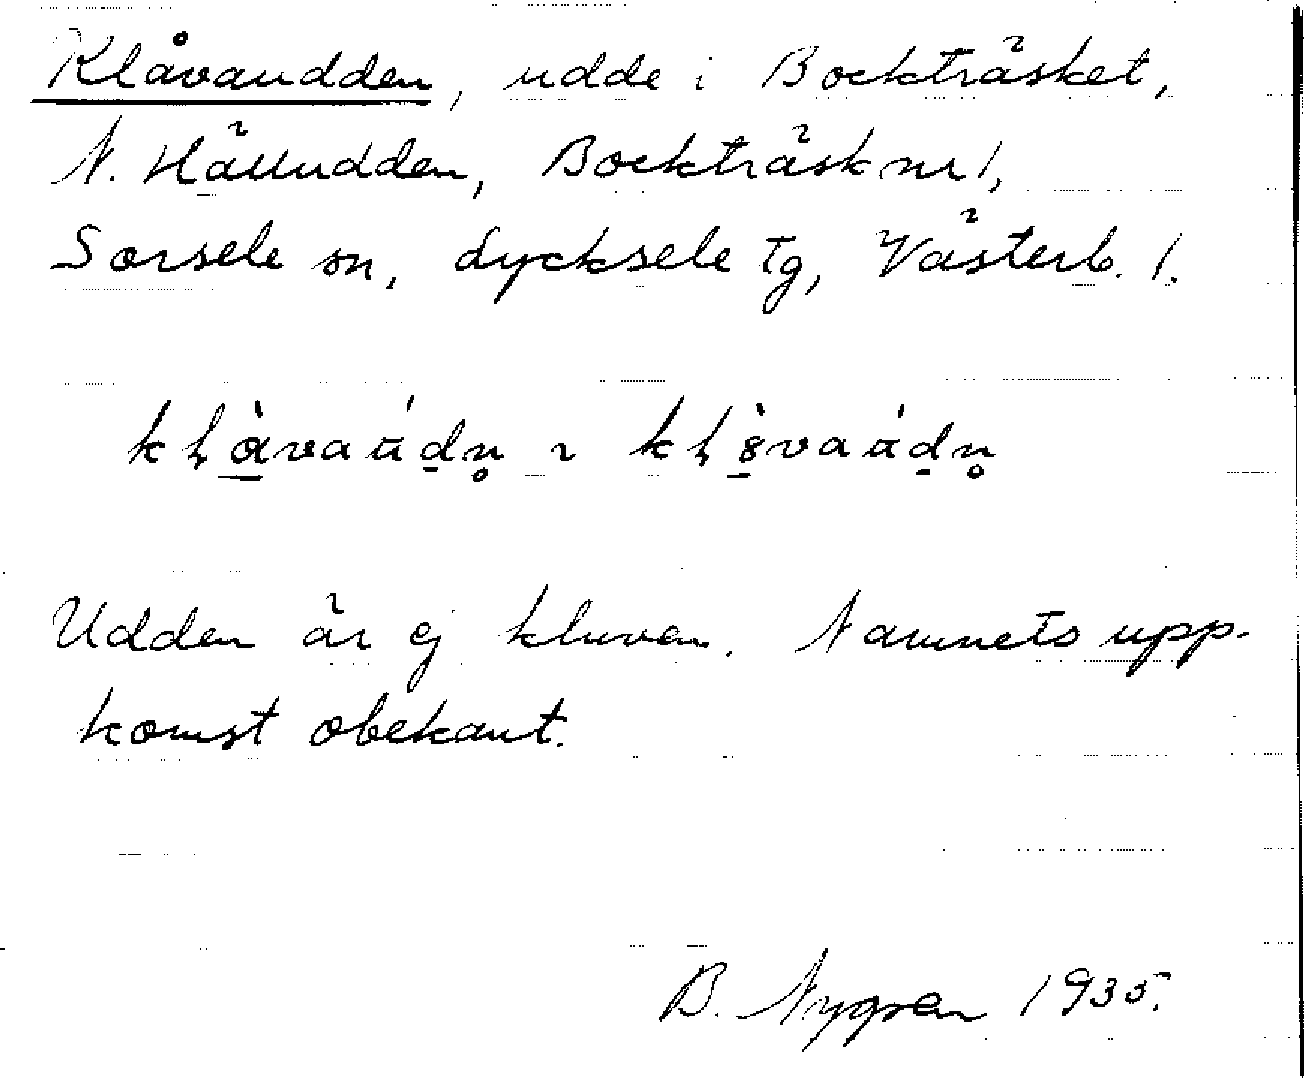 Klåvaudden, udde i Bockträsket,
N. Hälludden, Bockträsk nr 1,
Sorsele sn, Lycksele tg, Västerb. l.
Udden är ej kluven. Namnets upp-
komst obekant.
B. Nygren 1935.